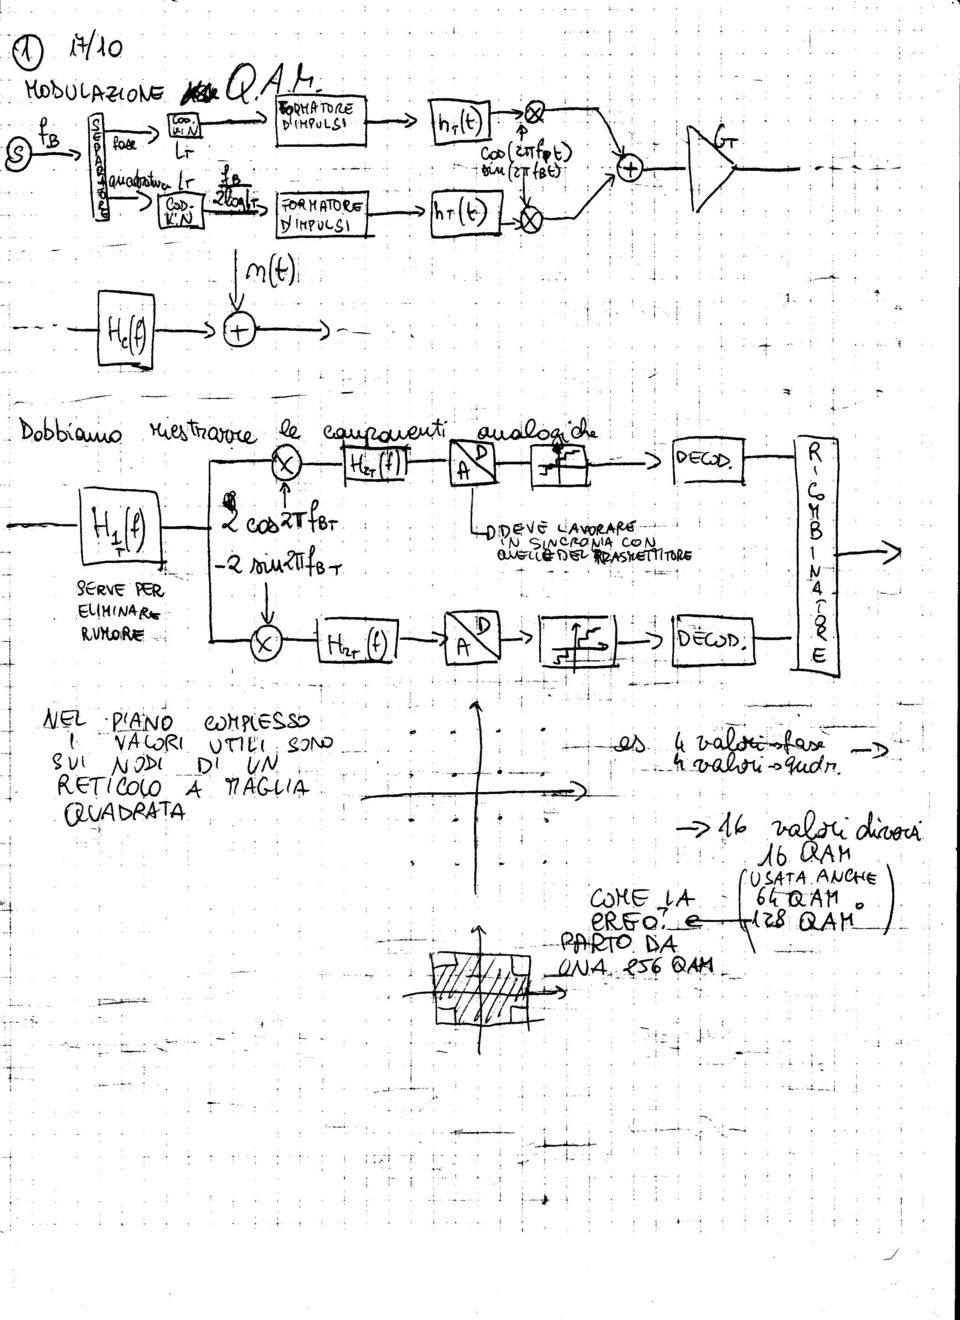 1 17/10
MODULAZIONE Q.A.M.
S
f_B
SEPARATORE
fase
COD. K:N
L_T
FORMATORE
D'IMPULSI
h_T(t)
cos(2πf_pt)
sin(2πf_Bt)
quadratura
L_T
COD.
K:N
f_B
2log L_T
FORMATORE
D'IMPULSI
h_T(t)
+
G_T
n(t)
H_c(f)
+
Dobbiamo riestrarre le componenti analogiche
H_1T(f)
SERVE PER
ELIMINARE
RUMORE
2 cos2πf_BT
-2 sin2πf_BT
H_2T(f)
A D
DECOD.
DEVE LAVORARE
IN SINCRONIA CON
QUELLE DEL TRASMETTITORE
H_2T(f)
A D
DECOD.
RICOMBINATORE
NEL PIANO COMPLESSO
I VALORI UTILI SONO
SUI NODI DI UN
RETICOLO A MAGLIA
QUADRATA
es 4 valori→fase →
4 valori→quadr.
→ 16 valori diversi
16 QAM
(USATA ANCHE
64 QAM
128 QAM)
COME LA
CREO?
PARTO DA
UNA 256 QAM